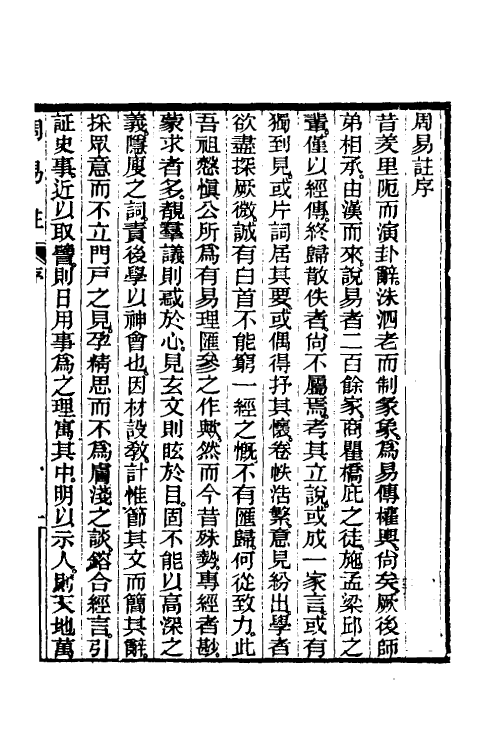 周易註序
昔羑里阨而演卦辭。洙泗老而制彖象。為易傳權輿。尙矣。厥後師
弟相承。由漢而來。說易者二百餘家。商瞿橋庇之徒。施孟梁邱之
輩。僅以經傳。終歸散佚者。尙不屬焉。考其立說。或成一家言。或有
獨到見。或片詞居其要。或偶得抒其懷。卷帙浩繁。意見紛出。學者
欲盡探厥微。誠有白首不能窮一經之慨。不有匯歸。何從致力。此
吾祖慤愼公所為有易理匯參之作歟。然而今昔殊勢。專經者尠。
蒙求者多。覩羣議則惑於心。見玄文則眩於目。固不能以高深之
義。隱廋之詞。責後學以神會也。因材設教。計惟節其文而簡其辭。
採眾意而不立門戶之見。孕精思而不為膚淺之談。鎔合經言。引
証史事。近以取譬。則日用事為之理寓其中。明以示人。則天地萬
周易註 序
一